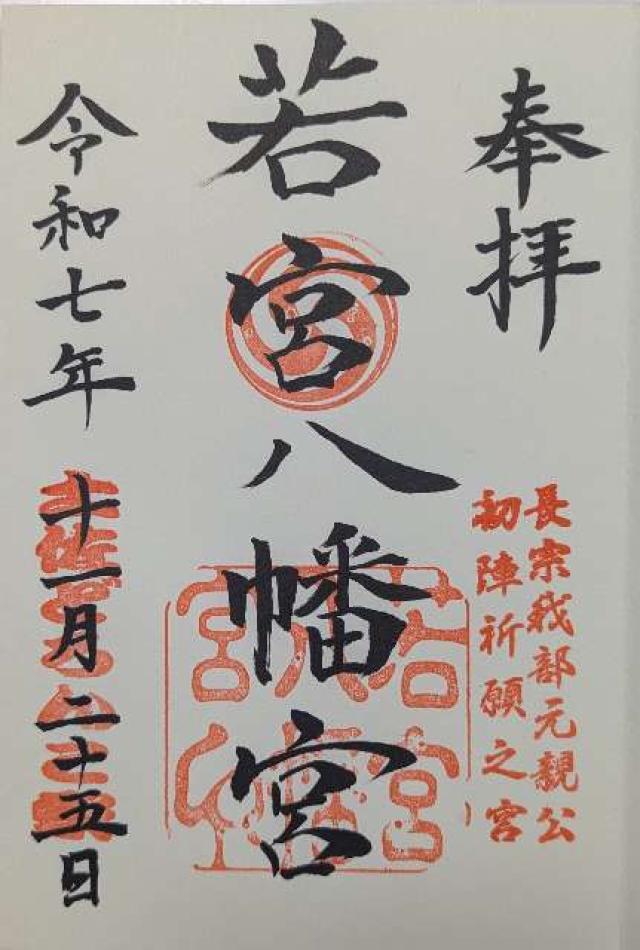 奉拝
長宗我部元親公
初陣祈願之宮
若宮八幡宮
令和七年
十一月二十五日